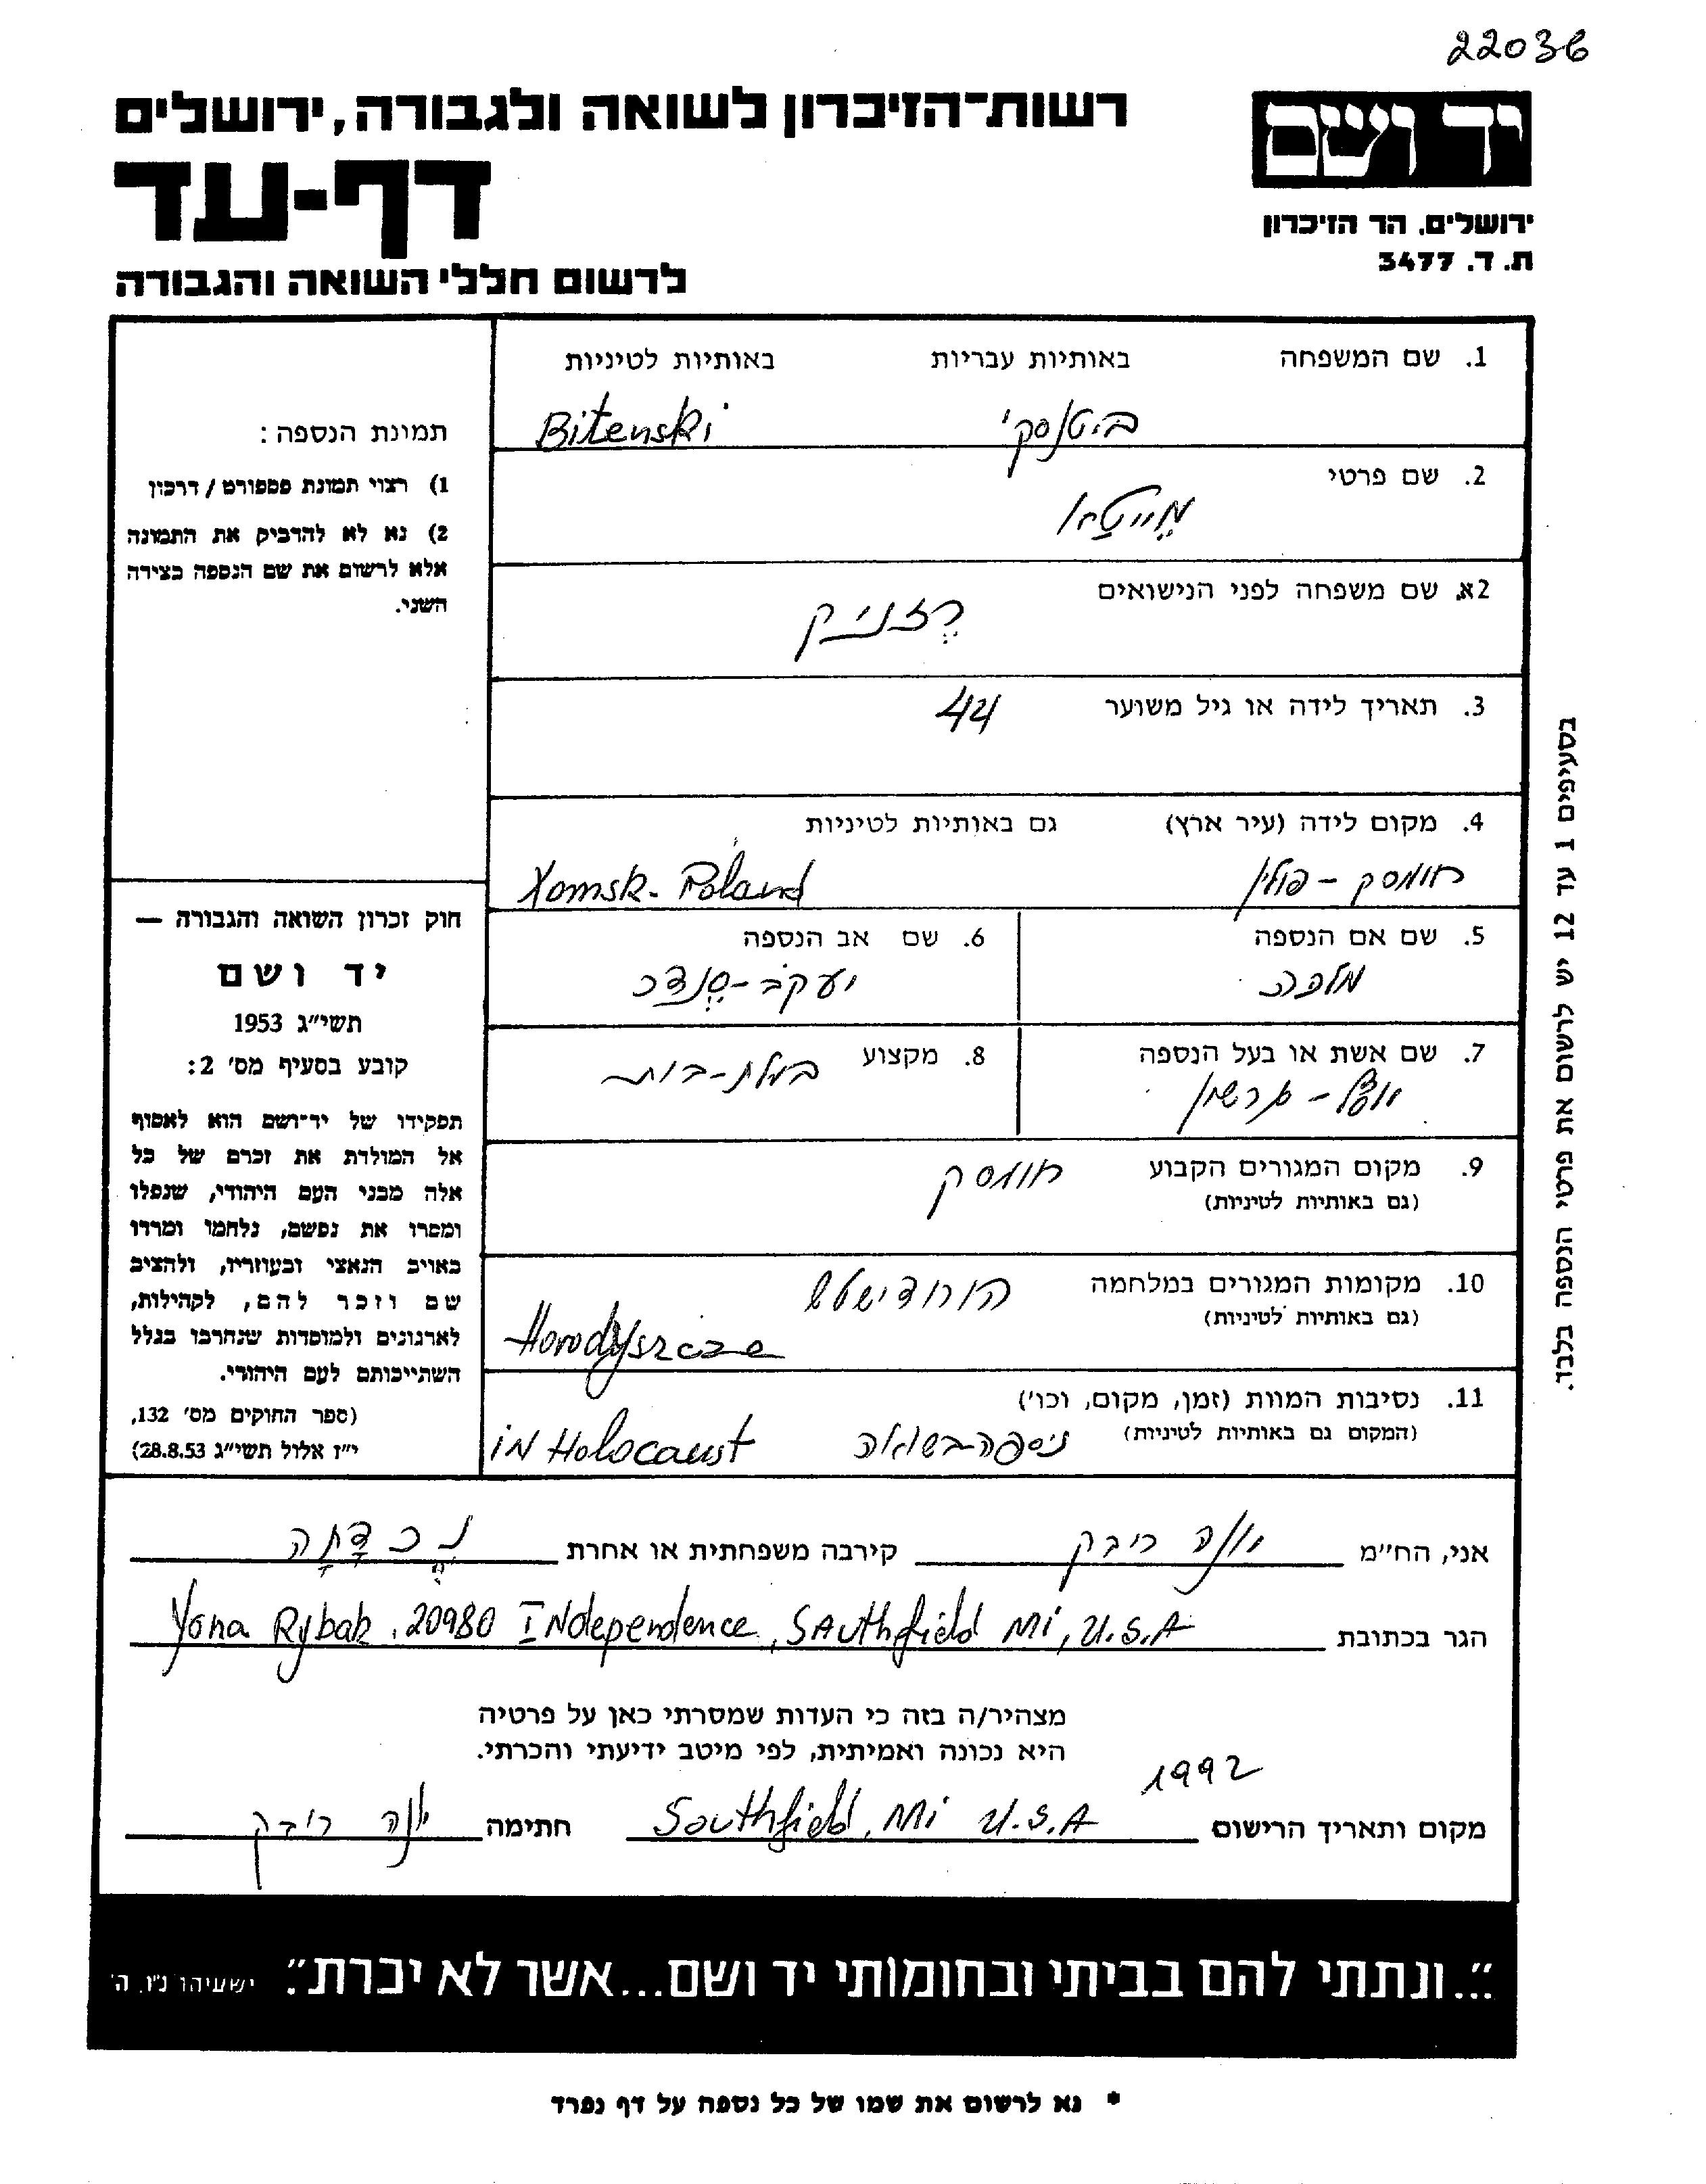 22036
יד ושם
רשות-הזיכרון לשואה ולגבורה, ירושלים
דף-עד
לרשום חללי השואה והגבורה
ירושלים. הר הזיכרון
ת. ד. 3477
1. שם המשפחה באותיות עבריות באותיות לטיניות
ביטנסקי Bitenski
2. שם פרטי
מייטא
2א. שם משפחה לפני הנישואים
רזניק
3. תאריך לידה או גיל משוער
44
4. מקום לידה (עיר ארץ) גם באותיות לטיניות
חומסק - פולין Xomsk - Poland
5. שם אם הנספה
מלכה
6. שם אב הנספה
יעקב-סנדר
7. שם אשת או בעל הנספה
גרשון
8. מקצוע
בעלת-בית
9. מקום המגורים הקבוע
(גם באותיות לטיניות)
חומסק
10. מקומות המגורים במלחמה
(גם באותיות לטיניות)
הורודישטש
Horodyszcze
11. נסיבות המוות (זמן, מקום, וכו')
(המקום גם באותיות לטיניות)
ניספה בשואה iN Holocaust
תמונת הנספה:
1) רצוי תמונת פספורט / דרכון
2) נא לא להדביק את התמונה
אלא לרשום את שם הנספה בצידה
השני.
חוק זכרון השואה והגבורה —
יד ושם
תשי"ג 1953
קובע בסעיף מס' 2:
תפקידו של יד-ושם הוא לאסוף
אל המולדת את זכרם של כל
אלה מבני העם היהודי, שנפלו
ומסרו את נפשם, נלחמו ומרדו
באויב הנאצי ובעוזריו, ולהציב
שם וזכר להם, לקהילות,
לארגונים ולמוסדות שנחרבו בגלל
השתייכותם לעם היהודי.
(ספר החוקים מס' 132,
י"ז אלול תשי"ג 28.8.53)
בסעיפים 1 עד 12 יש לרשום את פרטי הנספה בלבד.
אני, הח"מ יונה ריבק קירבה משפחתית או אחרת נכדתה
הגר בכתובת Yona Rybak, 20980 INdependence, SAuthfield Mi, U.S.A
מצהיר/ה בזה כי העדות שמסרתי כאן על פרטיה
היא נכונה ואמיתית, לפי מיטב ידיעתי והכרתי.
1992
מקום ותאריך הרישום Southfield, Mi U.S.A חתימה יונה ריבק
"...ונתתי להם בביתי ובחומותי יד ושם...אשר לא יכרת". ישעיהו נ"ו, ה'
* נא לרשום את שמו של כל נספה על דף נפרד